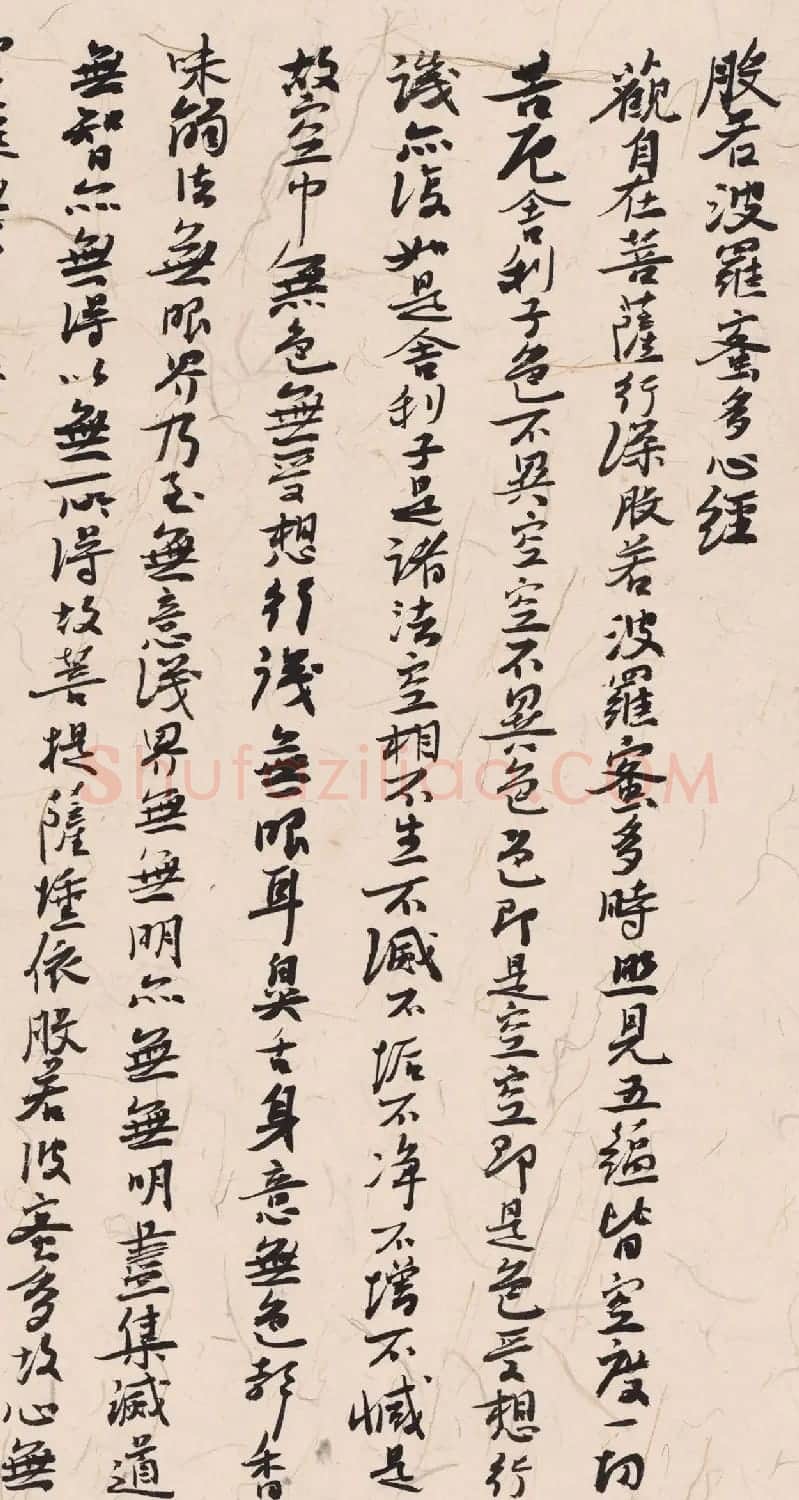 般若波羅蜜多心經
觀自在菩薩行深般若波羅蜜多時照見五蘊皆空度一切
苦厄舍利子色不異空空不異色色即是空空即是色受想行
識亦復如是舍利子是諸法空相不生不滅不垢不淨不增不減是
故空中無色無受想行識無眼耳鼻舌身意無色聲香
味觸法無眼界乃至無意識界無無明亦無無明盡集滅道
無智亦無得以無所得故菩提薩埵依般若波蜜多故心無
Shufaziliao.COM